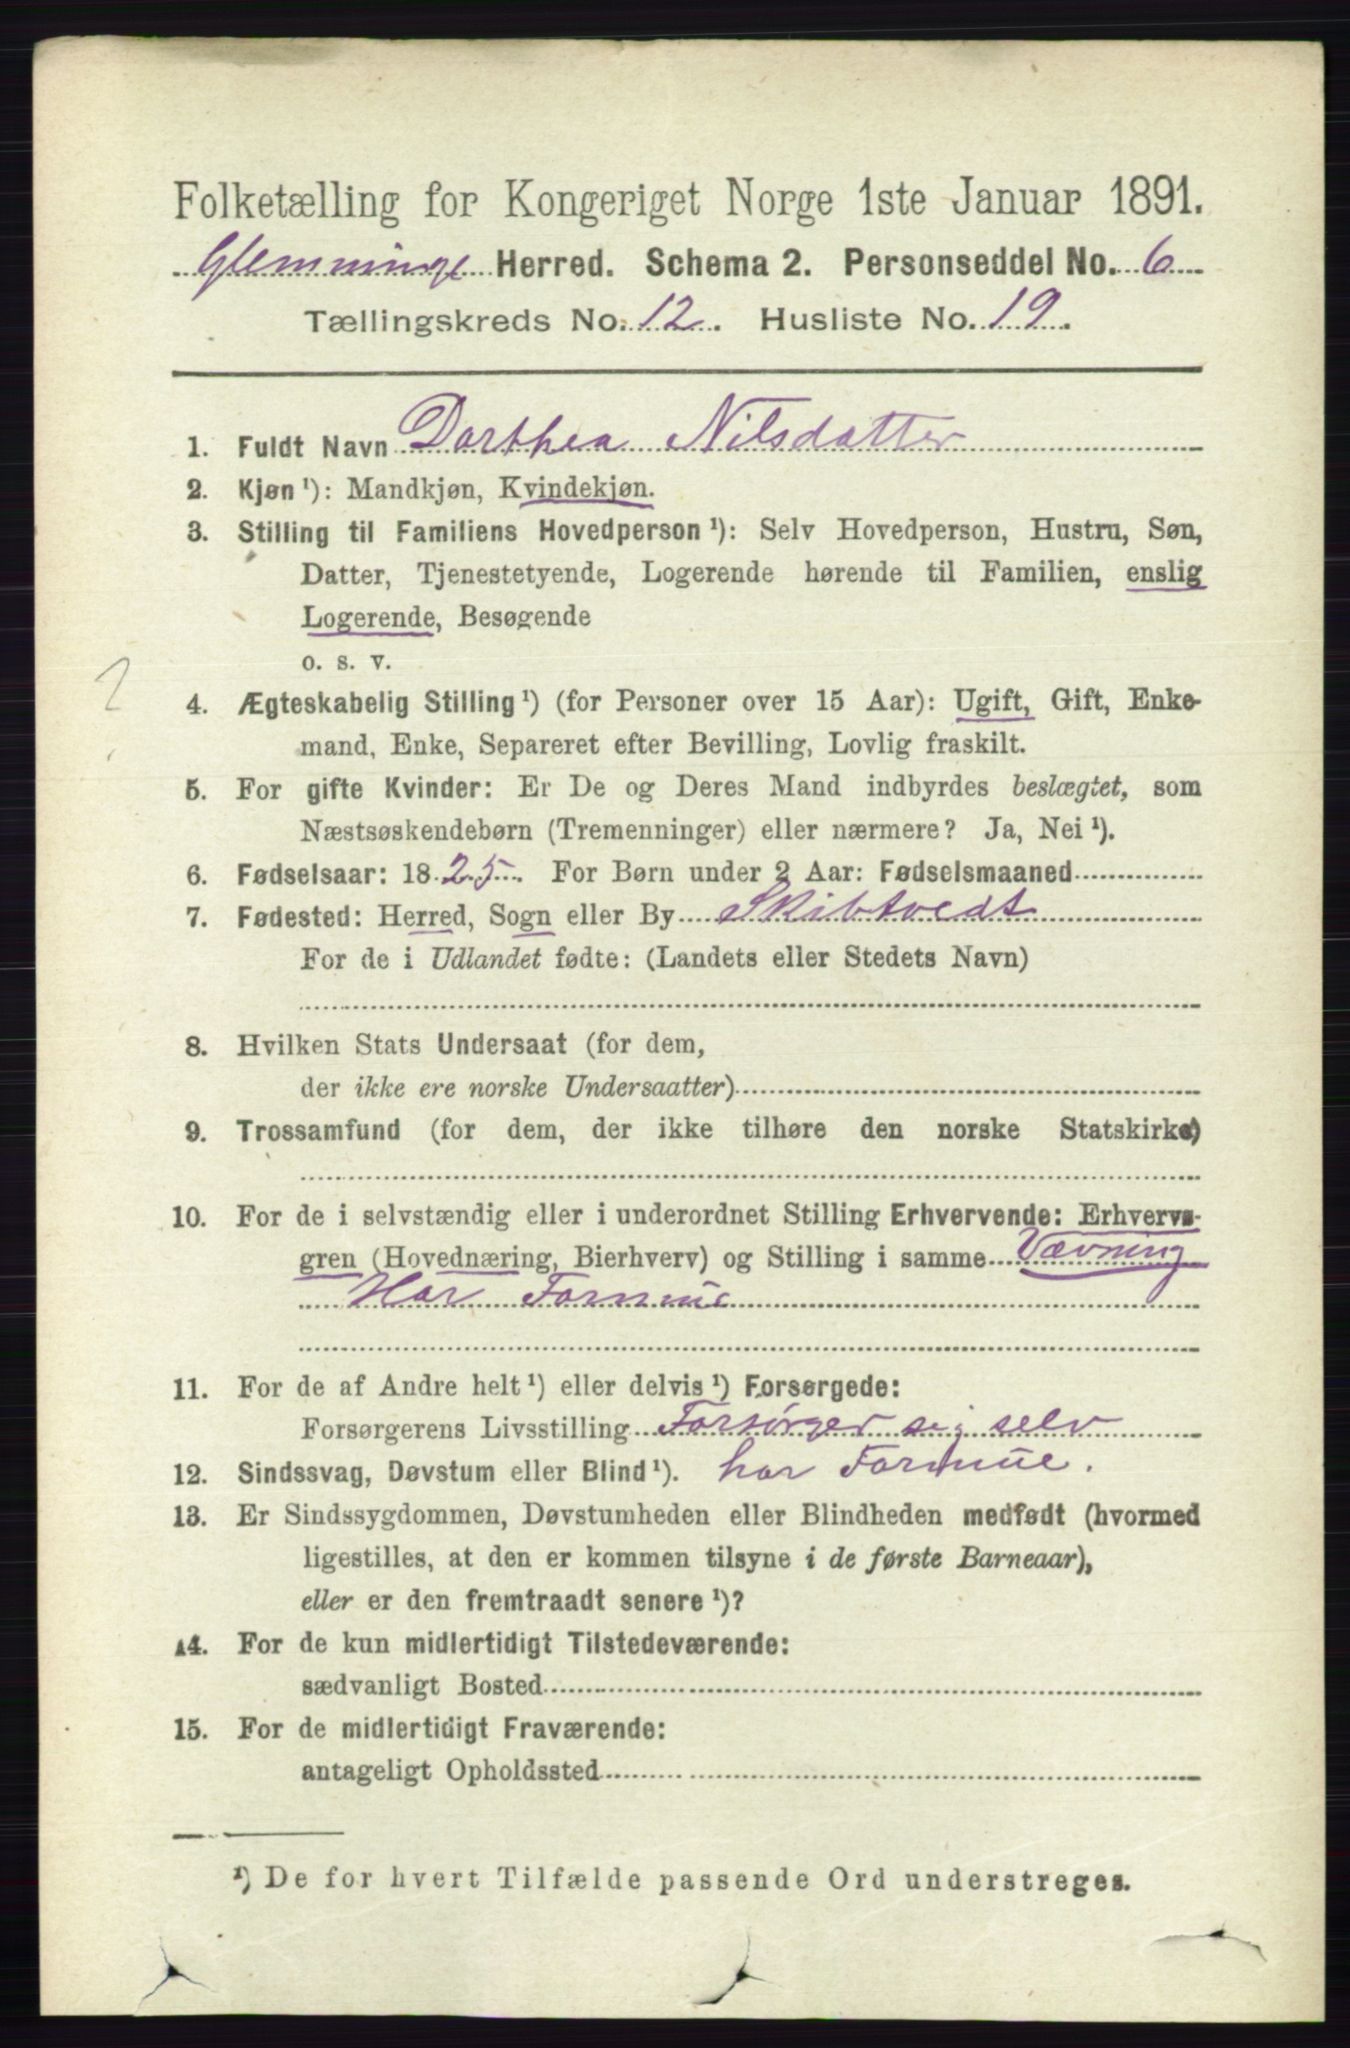 Folketælling for Kongeriget Norge 1ste Januar 1891.
Glemminge Herred. Schema 2. Personseddel No. 6
Tællingskreds No. 12. Husliste No. 19.
1. Fuldt Navn Dorthea Nilsdatter
2. Kjøn ¹): Mandkjøn, Kvindekjøn.
3. Stilling til Familiens Hovedperson ¹): Selv Hovedperson, Hustru, Søn,
Datter, Tjenestetyende, Logerende hørende til Familien, enslig
Logerende, Besøgende
o. s. v.
4. Ægteskabelig Stilling ¹) (for Personer over 15 Aar): Ugift, Gift, Enke-
mand, Enke, Separeret efter Bevilling, Lovlig fraskilt.
5. For gifte Kvinder: Er De og Deres Mand indbyrdes beslægtet, som
Næstsøskendebørn (Tremenninger) eller nærmere? Ja, Nei ¹).
6. Fødselsaar: 1825. For Børn under 2 Aar: Fødselsmaaned
7. Fødested: Herred, Sogn eller By Skibtvedt
For de i Udlandet fødte: (Landets eller Stedets Navn)
8. Hvilken Stats Undersaat (for dem,
der ikke ere norske Undersaatter)
9. Trossamfund (for dem, der ikke tilhøre den norske Statskirke)
10. For de i selvstændig eller i underordnet Stilling Erhvervende: Erhvervs-
gren (Hovednæring, Bierhverv) og Stilling i samme Vævning
Har Formue
11. For de af Andre helt ¹) eller delvis ¹) Forsørgede:
Forsørgerens Livsstilling Forsørger sig selv
12. Sindssvag, Døvstum eller Blind ¹). har Formue.
13. Er Sindssygdommen, Døvstumheden eller Blindheden medfødt (hvormed
ligestilles, at den er kommen tilsyne i de første Barneaar),
eller er den fremtraadt senere ¹)?
14. For de kun midlertidigt Tilstedeværende:
sædvanligt Bosted
15. For de midlertidigt Fraværende:
antageligt Opholdssted
¹) De for hvert Tilfælde passende Ord understreges.